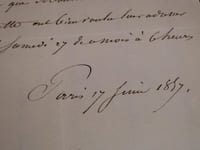 que
ont bien voulu leur adresser
Samedi 27 de ce mois à 6 heures
Paris 17 Juin 1857.